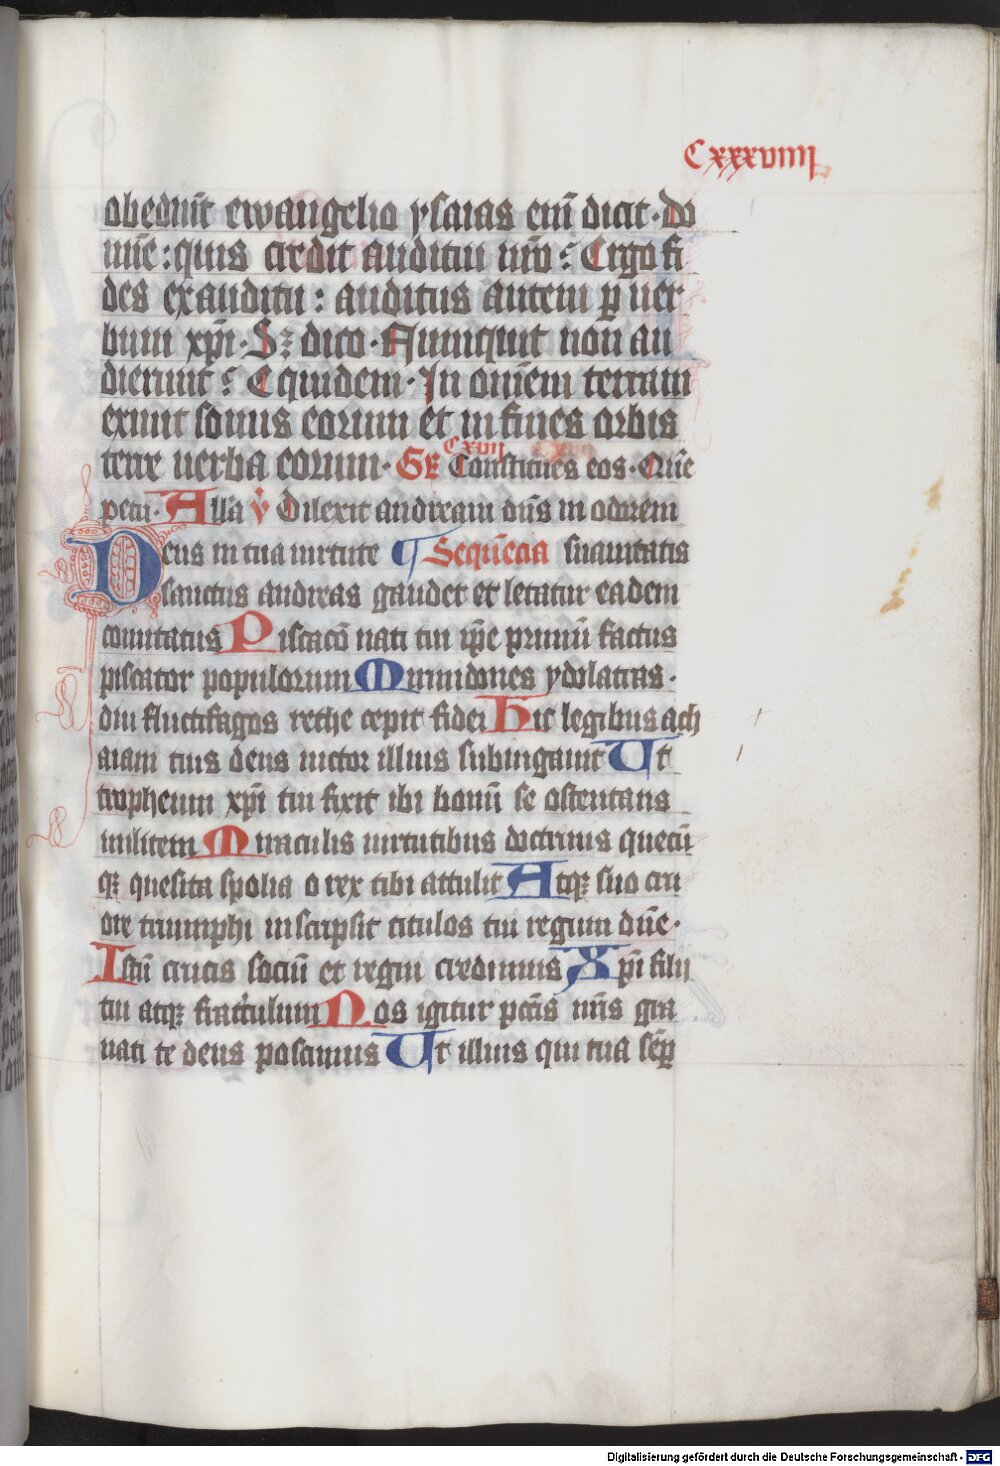 Cxxxviiij
obediūt ewangelio ysaias eiū dicit · Do
mīe : quis credit auditui nr̄o : Ergo fi
des exauditu : auditus autem ꝑ uer
bum xp̄i · Sꝫ dico · Numquit non au
dierunt : Et quidem · In om̄em terram
exiuit sonus eorum et in fines orbis
terre uerba eorum · Gr̄ Constitues eos · Que
Cxvij
petii · All'a v̓ Dilexit andream dn̄s in odorem
Deus in tua uirtute ¶ Sequēcia suauitatis
sanctus andreas gaudet et letatur eadem
comitatus Piscacō nati tui ip̄e primū factus
piscator populorum Mirmidones ydolatras ·
diu fluctifagos rethe cepit fidei Hic legibus ach
aiam tuis deus uictor illius subiugauit Ut
tropheum xp̄i tui fixit ibi bonū se ostentans
militem Miraculis uirtutibus doctrinis quecū
qꝫ quesita spolia o rex tibi attulit Atqꝫ suo cru
ore triumphi inscripsit titulos tui regium dn̄e ·
Istū crucis sociū et regni credimus Xp̄i filij
tui atqꝫ fraterculum Nos igitur pctīs nr̄is gra
uati te deus poscimus Ut illius qui tua semꝑ
Digitalisierung gefördert durch die Deutsche Forschungsgemeinschaft - DFG